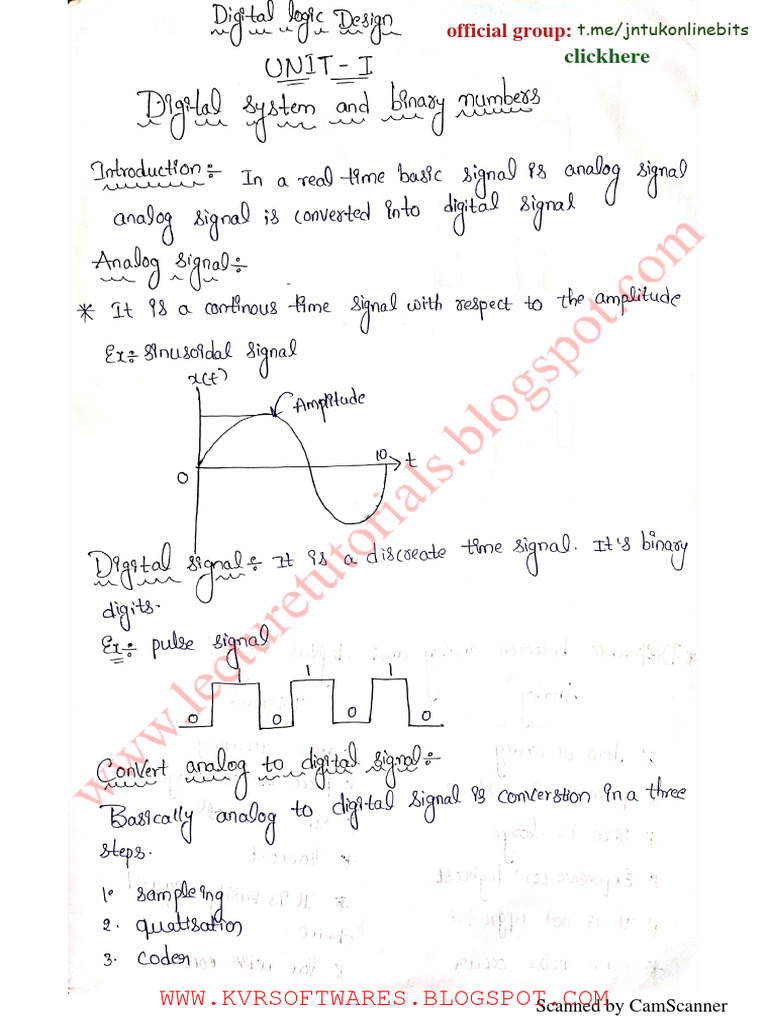 Digital logic Design
official group: t.me/jntukonlinebits
clickhere
UNIT-I
Digital system and binary numbers
Introduction:- In a real time basic signal is analog signal
analog signal is converted into digital signal
Analog signal:-
* It is a continous time signal with respect to the amplitude
Ex:- sinusoidal signal
x(t)
Amplitude
10
t
0
Digital signal:- It is a discreate time signal. It's binary
digits.
Ex:- pulse signal
1 1 1
0 0 0 0
Convert analog to digital signal:-
Basically analog to digital signal is converstion in a three
steps.
1. sampleing
2. quatisation
3. coder
www.lecturetutorials.blogspot.com
WWW.KVRSOFTWARES.BLOGSPOT.COM
Scanned by CamScanner